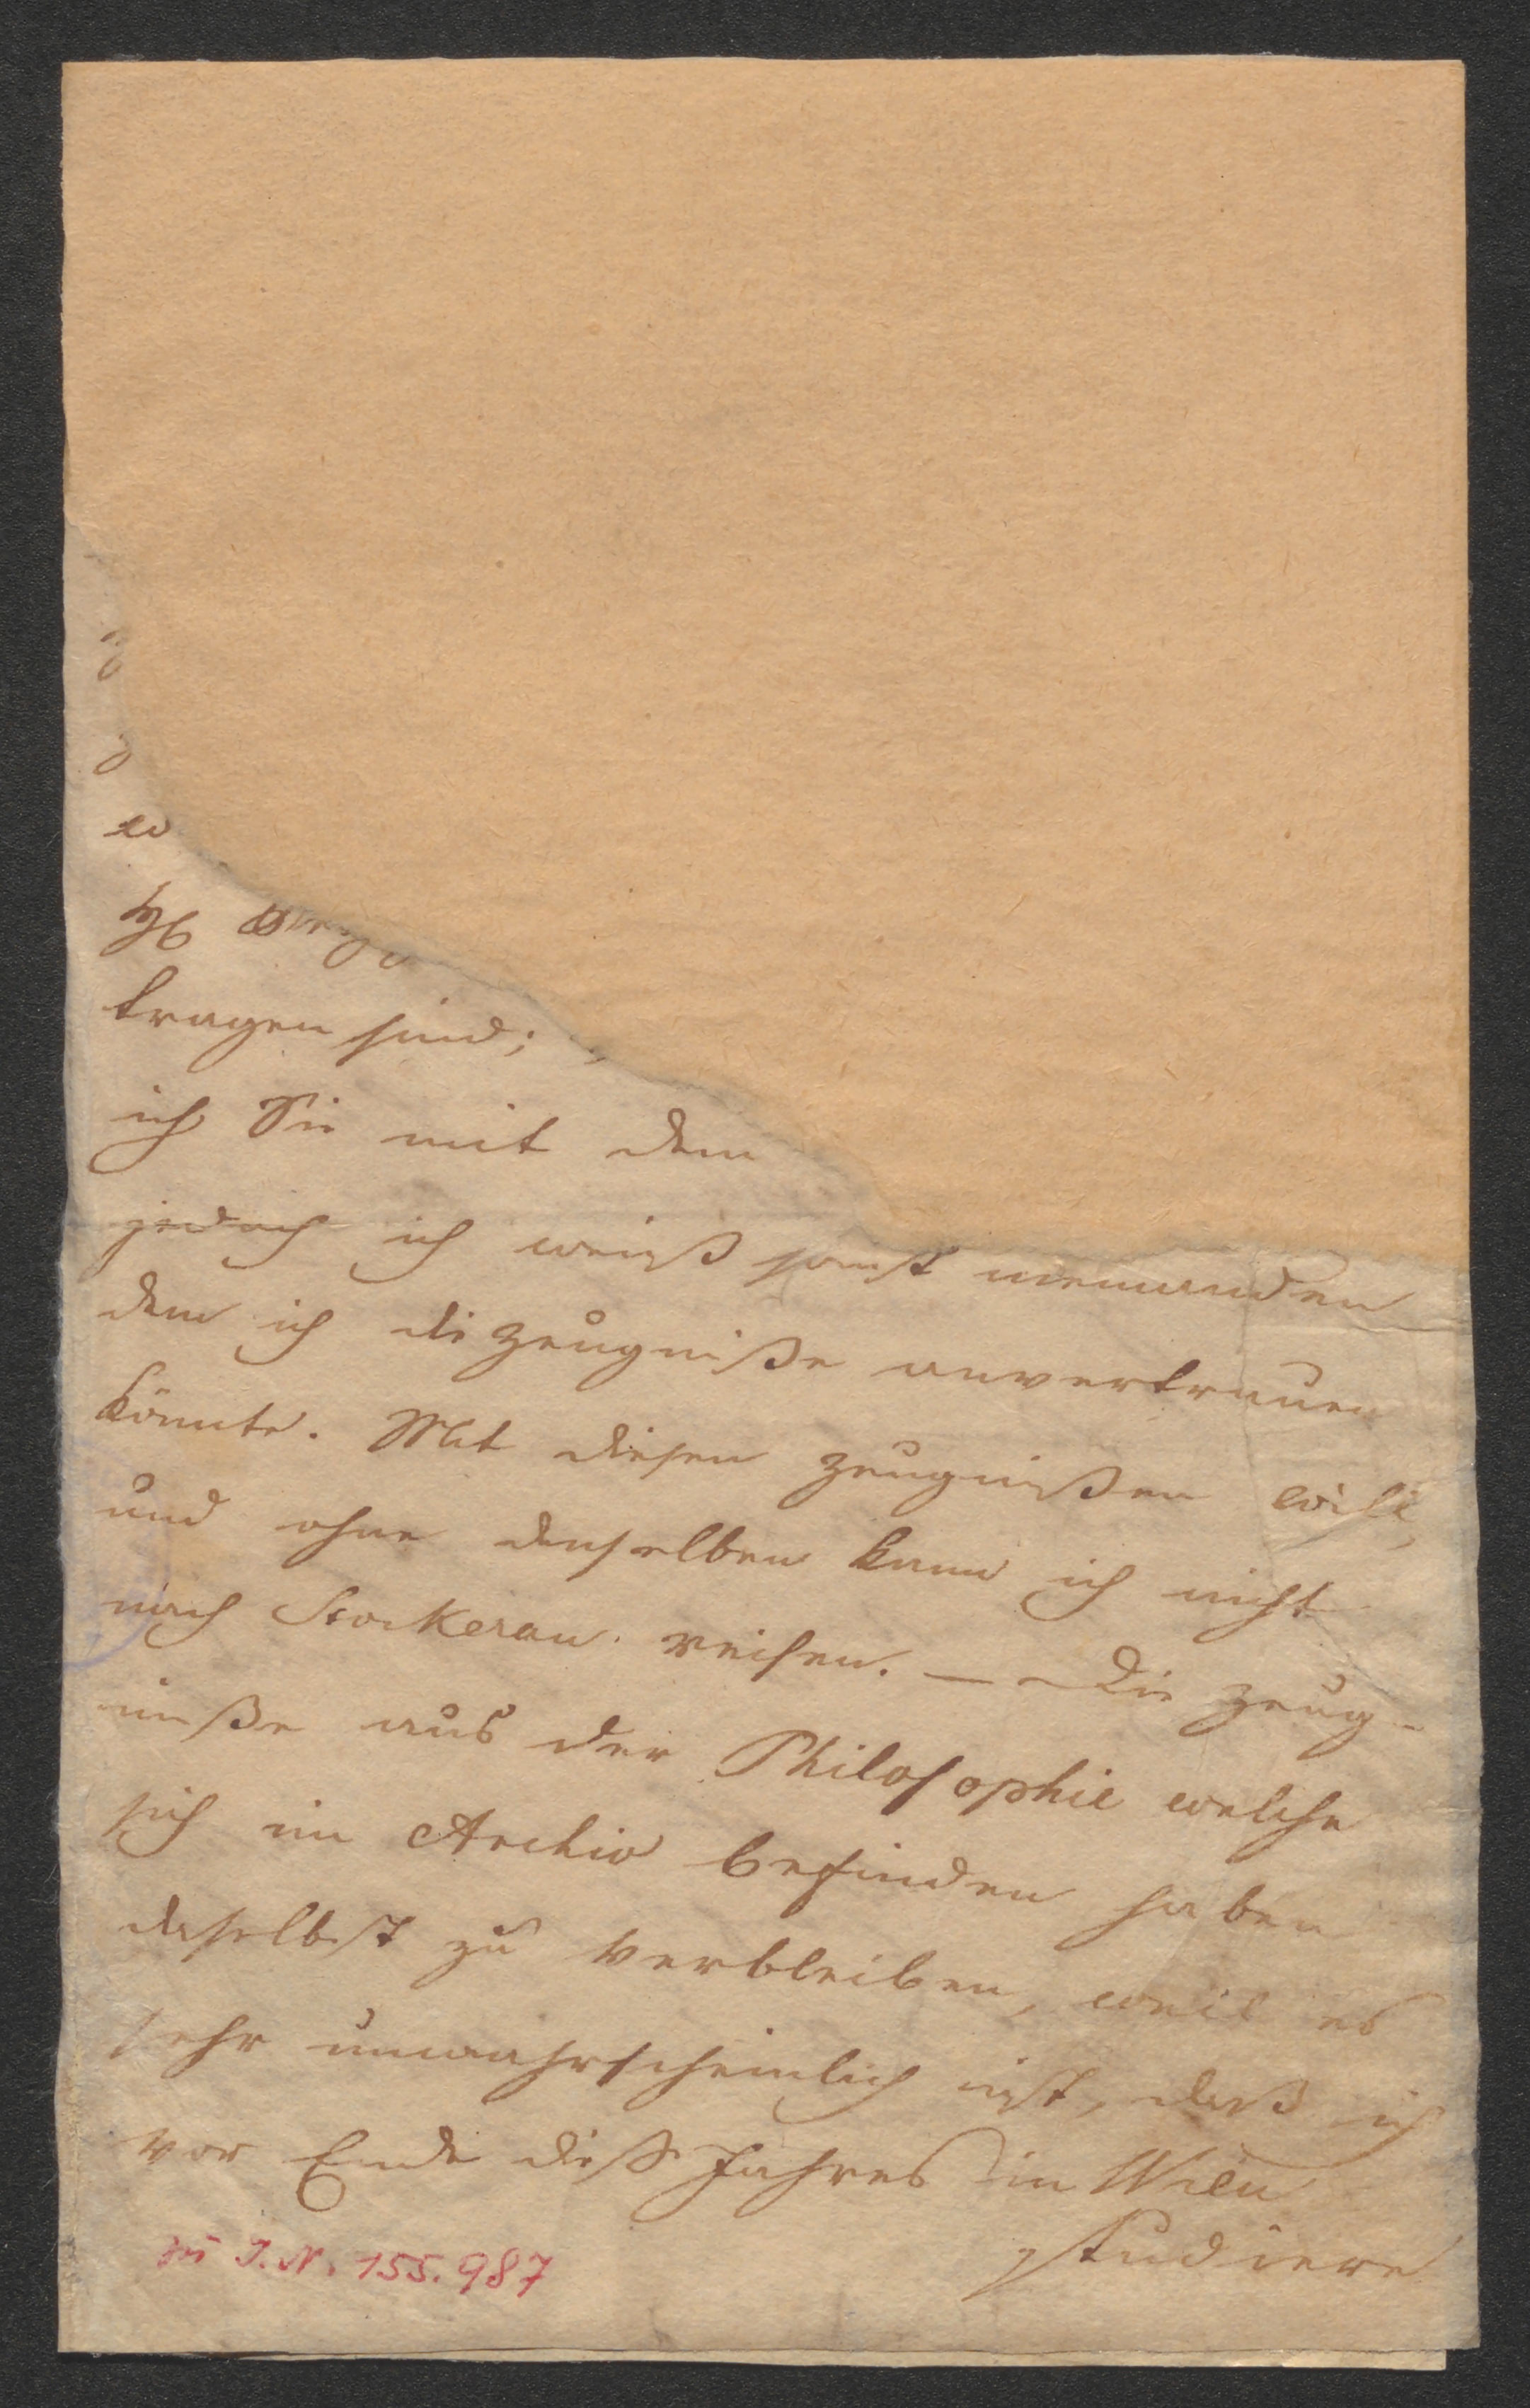 tragen sind;
ich Sie mit dem
jedoch ich weiß sonst niemanden
dem ich die Zeugniße anvertrauen
könnte. Mit diesen Zeugnißen will,
und ohne denselben kann ich nicht
nach Stockerau reisen. — Die Zeug-
niße aus der Philosophie welche
sich im Archiv befinden haben
daselbst zu verbleiben, weil es
sehr unwahrscheinlich ist, daß ich
vor Ende dieß Jahres in Wien
studiere
zu I.N. 155.987